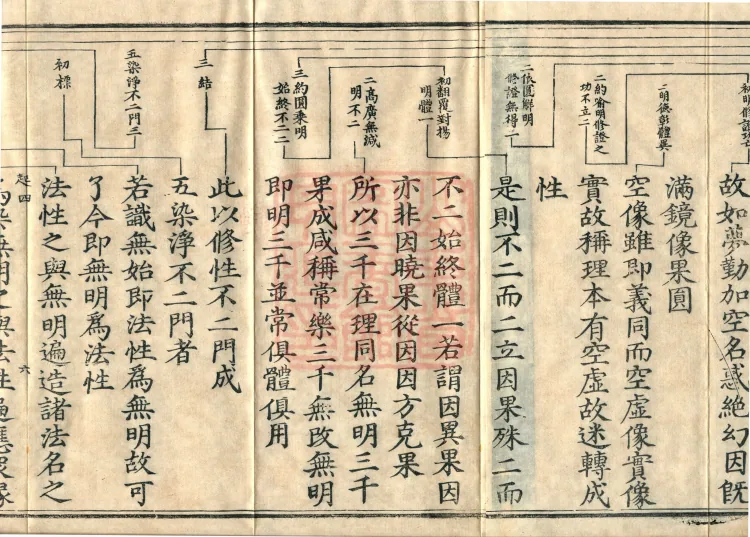 故如夢勤加空名惑絕幻因旣
二明德彰體異
滿鏡像果圓
空像雖即義同而空虛像實像
二約喻明修證之
功不立二
實故稱理本有空虛故迷轉成
性
二依圓解明
修證無得二
是則不二而二立因果殊二而
初翻覆對揚
明體一
不二始終體一若謂因異果因
亦非因曉果從因因方克果
二高廣無減
明不二
所以三千在理同名無明三千
果成咸稱常樂三千無改無明
三約圓乘明
始終不二二
即明三千並常俱體俱用
三結
此以修性不二門成
五染淨不二門三
五染淨不二門者
初標
若識無始即法性爲無明故可
了今即無明爲法性
法性之與無明遍造諸法名之
起四
六
染無明之與法性遍應衆緣